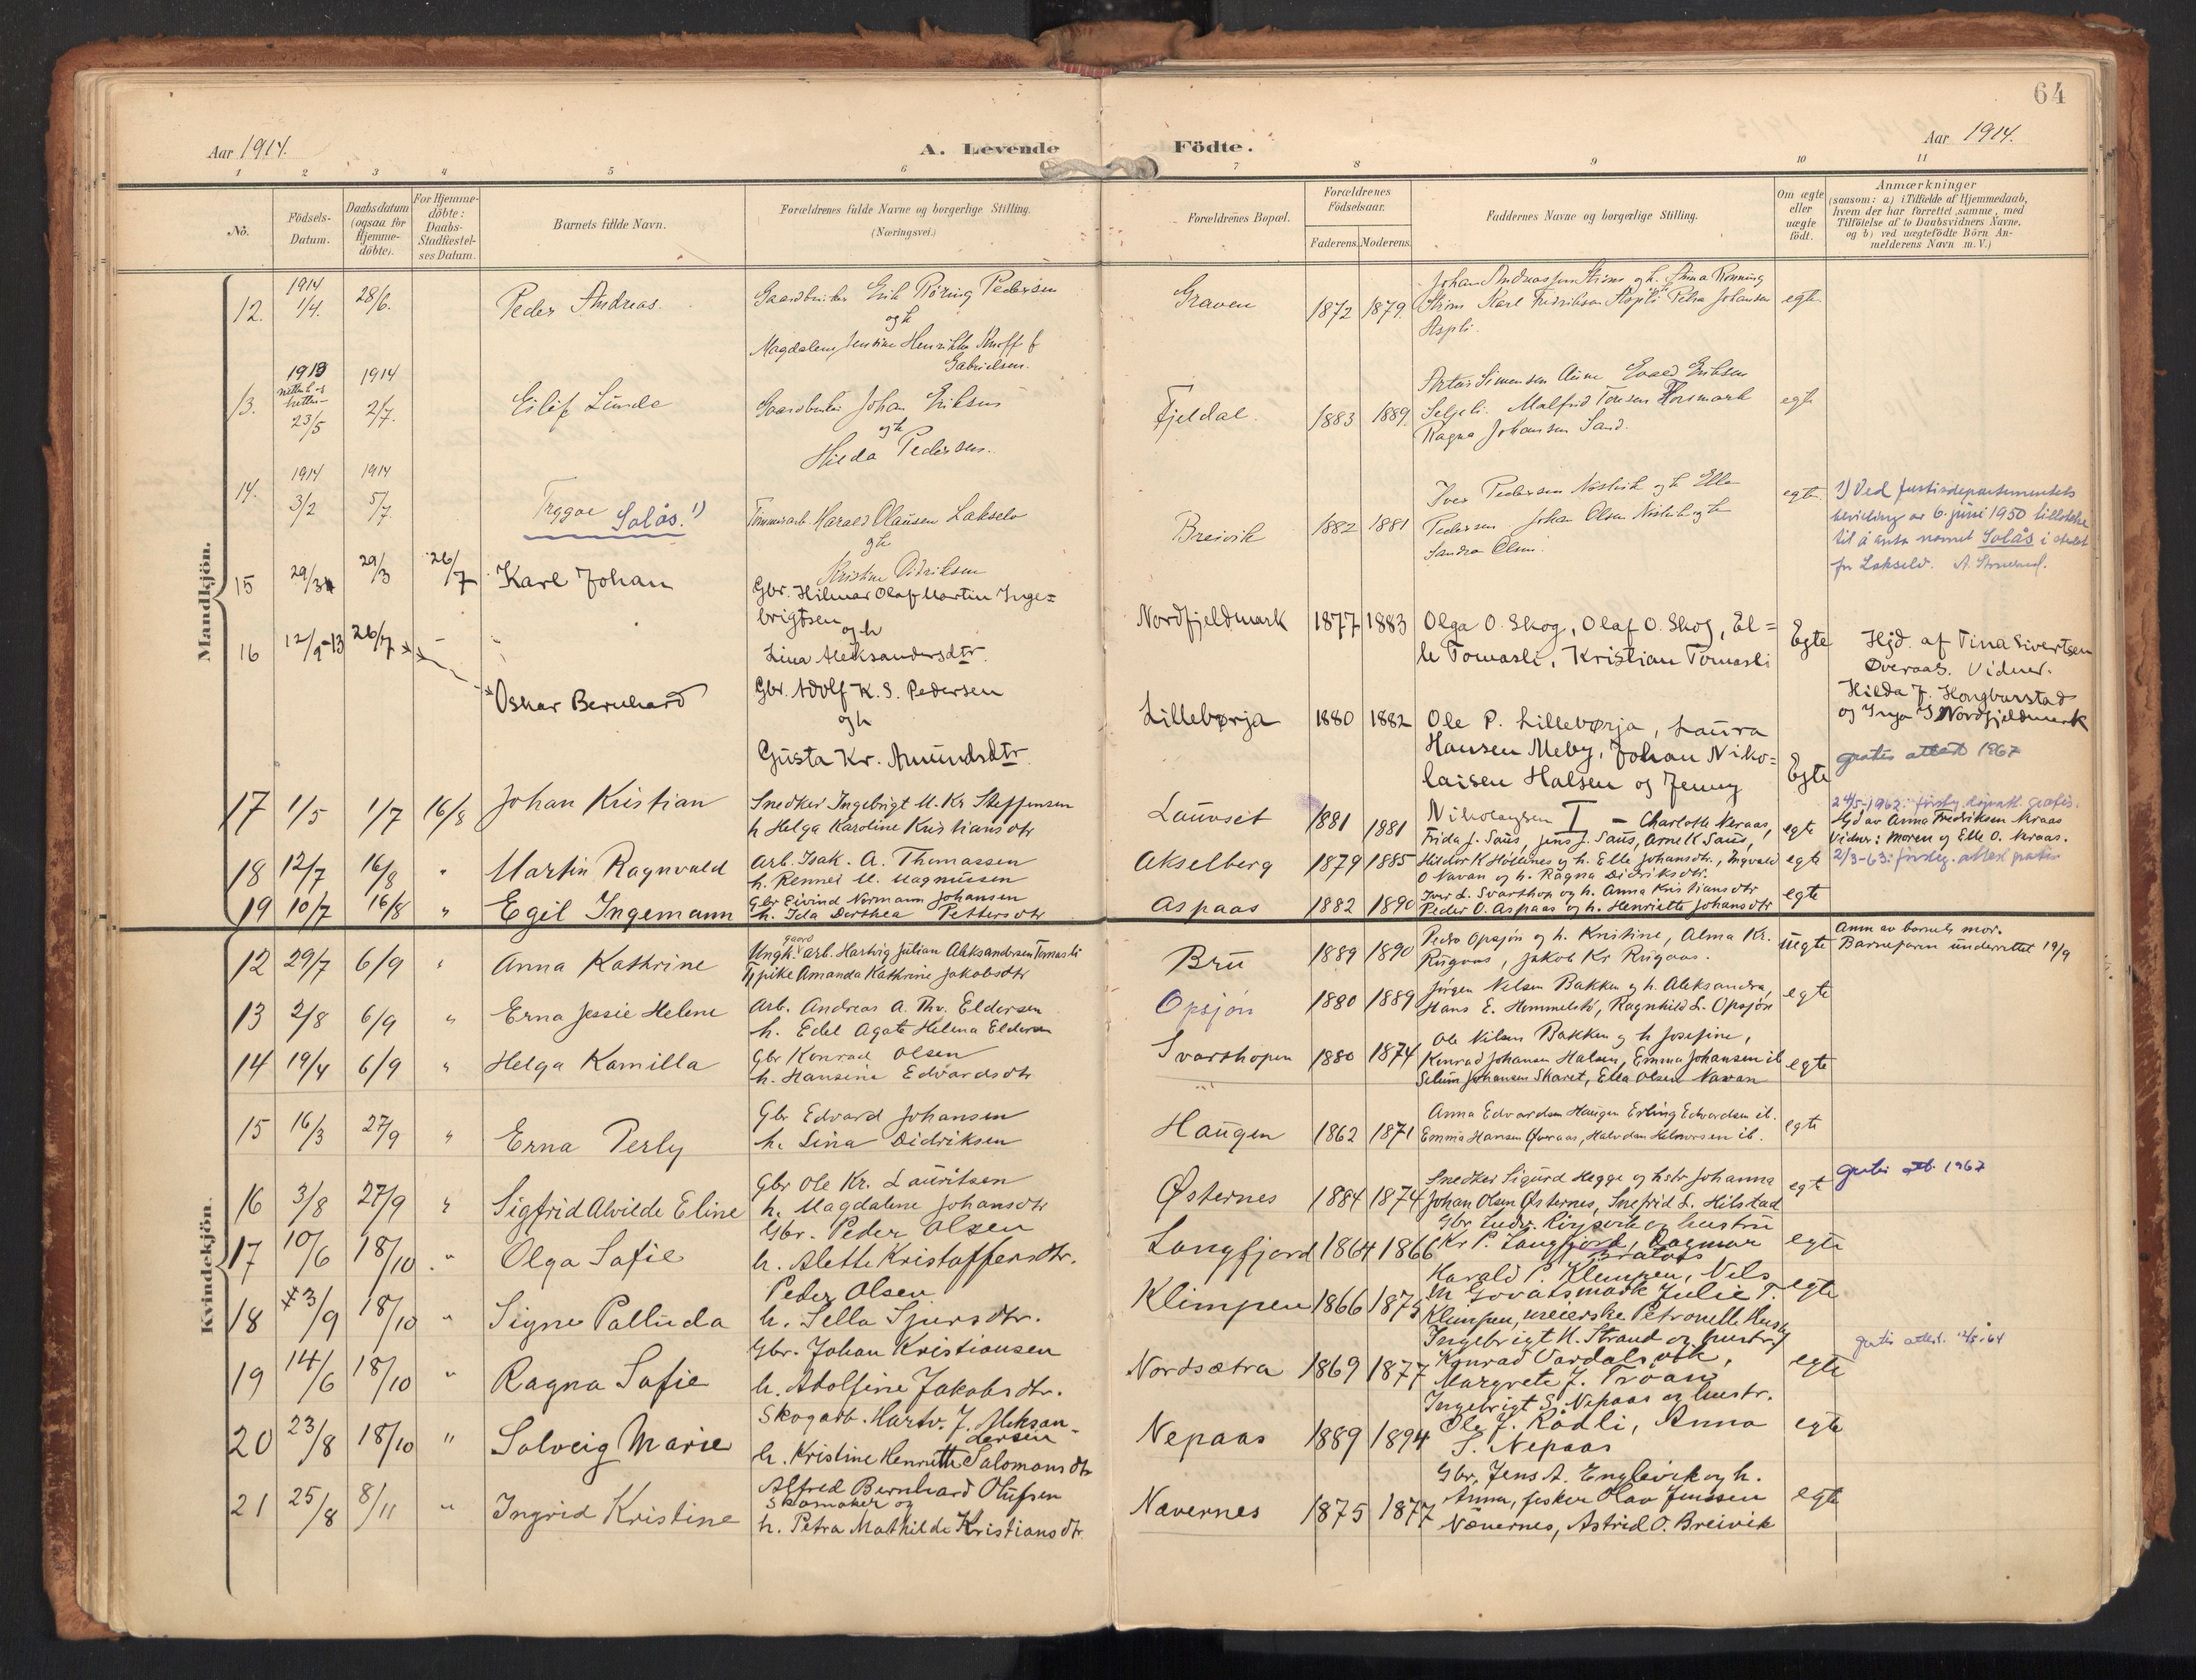 64
Aar 1914.
A. Levende
Födte.
Aar 1914.
1 2 3 4 5 6 7 8 9 10 11
No.
Födsels-
Datum.
Daabsdatum
(ogsaa for
Hjemme-
döbte).
For Hjemme-
döbte:
Daabs-
Stadfæstel-
ses Datum.
Barnets fulde Navn.
Forældrenes fulde Navne og borgerlige Stilling.
(Næringsvei.)
Forældrenes Bopæl.
Forældrenes
Födselsaar.
Faderens. Moderens.
Faddernes Navne og borgerlige Stilling.
Om ægte
eller
uægte
födt.
Anmærkninger
(saasom: a) i Tilfælde af Hjemmedaab,
hvem der har forrettet samme, med
Tilföielse af to Daabsvidners Navne,
og b) ved uægtefödte Börn An-
melderens Navn m. V.)
Mandkjön.
12. 1914 1/4. 28/6. Peder Andreas.
Gaardbruker Erik Röring Pedersen
og h
Magdalena Jensine Henrikke f
Gabrielsen.
Graven 1872 1879.
Johan Andreassen Strøm og h. Stina Rønning
Strøm Karl Fredriksen Aspli Petra Johansen
Aspli.
egte
13. 1913 23/5 1914 2/7. Eilif Linde
Gaardbruker Johan Eriksen
og h
Hilda Pedersen.
Fjeldal. 1883 1889.
Artur Simonsen Aune Evald Eriksen
Seljeli. Malfrid Tonesen Horsmark
Ragna Johansen Sand.
egte
14. 1914 3/2 1914 5/7. Trygve Solås. 1)
Tömmerarb. Harald Olausen Lakselv
og h
Kristine Didriksen
Breivik 1882 1881
Iver Pedersen og h Ella
Pedersen Johan Olsen og h
Sandra Olsen.
egte
1) Ved Justisdepartementets
bevilling av 6. juni 1950 tillatelse
til å anta navnet Solås i stedet
for Lakselv.
15 29/3 29/3 26/7 Karl Johan
Gbr. Hilmar Olaf Martin Inge=
brigtsen og h
Lina Aleksandersdtr.
Nordfjeldmark 1877 1883
Olga O. Skog, Olaf O. Skog, El=
le Tomasli, Kristian Tomasli
Egte
Hjd. af Tina Sivertsen
Overaas. Vidner.
Hilda J. Hongbarstad
og Inga Nordfjeldmark
16 12/9-13 26/7 Oskar Bernhard
Gbr. Adolf K. S. Pedersen
og h
Gusta Kr. Amundsdtr.
Lillebørja 1880 1882
Ole P. Lillebørja, Laura
Hansen Meby, Johan Niko=
laisen Halsen og Jenny
Nikolaysen
Egte
gratis attest 1967
17 1/5 1/7 16/8 Johan Kristian
Snedker Ingebrigt M. Kr Steffensen
h Helga Karoline Kristiansdtr
Lauvset 1881 1881
I - Charlotte Neraas,
Frida J. Saus, Jens J. Saus, Arne K Saus,
egte
24/5-1962:
Hjd av Anna Fredriksen Neraas
Vidner: Moren og Elle O. Neraas.
18 12/7 16/8 " Martin Ragnvald
Arb. Isak. A. Thomassen
h. Rennei M. Magnussen
Akselberg 1879 1885
Hildor K Höllenes og h. Elle Johansdtr., Ingvald
O Navan og h. Ragna Didriksdtr.
egte
2/3-63: attest gratis
19 10/7 16/8 " Egil Ingemann
Gbr Eivind Normann Johansen
h. Ida Dorthea Pettersdtr
Aspaas 1882 1890
Iver L. Svarthop og h. Anna Kristiansdtr
Peder O. Aspaas og h. Henriette Johansdtr
egte
Kvindekjön.
12 29/7 6/9 " Anna Kathrine
Ungk. gaard arb. Hartvig Julian Aleksandersen Tomasli
Tj pike Amanda Kathrine Jakobsdtr
Bru 1889 1890
Pedro Opsjön og h. Kristine, Alma Kr.
Rugaas, Jakob Kr Rugaas.
uegte
Anm av barnets mor.
Barnefaren underrettet 19/9
13 2/8 6/9 " Erna Jessie Helene
Arb. Andreas A. Thv. Eldersen
h. Edel Agate Helena Eldersen
Opsjön 1880 1889
Jörgen Nilsen Bakken og h. Aleksandra,
Hans E. Hommelstö, Ragnhild L. Opsjön
egte
14 19/4 6/9 " Helga Kamilla
Gbr Konrad Olsen
h. Hansine Edvardsdtr
Svarthopen 1880 1874
Ole Nilsen Bakken og h Josefine,
Konrad Johansen Halsen, Emma Johansen ib
Selum Johansen Skaret, Ella Olsen Navan
egte
15 16/3 27/9 " Erna Perly
Gbr Edvard Johansen
h. Lina Didriksen
Haugen 1862 1871
Anna Edvardsen Haugen Erling Edvardsen ib.
Emma Hansen Øveraas, Halvdan Helmersen ib.
egte
16 3/8 27/9 " Sigfrid Alvilde Eline
Gbr Ole Kr. Lauritsen
h. Magdalene Johansdtr
Østernes 1884 1874
Snedker Sigurd Hegge og hstr Johanna
Johan Olsen Østernes, Snefrid L. Hilstad
egte
gratis att. 1967
17 10/6 18/10 " Olga Sofie
Gbr. Peder Olsen
h. Alette Kristoffersdtr.
Langfjord 1864 1866
Gbr Ludv. og hustru
Kr P. Langfjord, Dagmar
Brataas
egte
18 3/9 18/10 " Signe Palluda
Peder Olsen
h. Sella Sjursdtr.
Klimpen 1866 1875
Harald P. Klimpen, Nils
M Govatsmark Julie T.
Klimpen, meierske Petronelle
egte
19 14/6 18/10 " Ragna Sofie
Gbr. Johan Kristiansen
h. Adolfine Jakobsdtr.
Nordsætra 1869 1877
Ingebrigt H. Strand og hustru
Konrad Vardalsvik,
Margrete J. Troan
egte
gratis attest. 12/5-64
20 23/8 18/10 " Solveig Marie
Skogarb. Hartv. J. Aleksan-
dersen
h. Kristine Henriette Salomonsdtr
Nepaas 1889 1894
Ingebrigt S. Nepaas og hustr.
Ole J. Rödli, Anna
S. Nepaas
egte
21 25/8 8/11 " Ingrid Kristine
Alfred Bernhard Olufsen
Skomaker og
h. Petra Mathilde Kristiansdtr.
Navernes 1875 1877
Gbr. Jens A. Englivik og h.
Anna, fisker Olav Jenssen
Nævernes, Astrid O. Breivik
egte